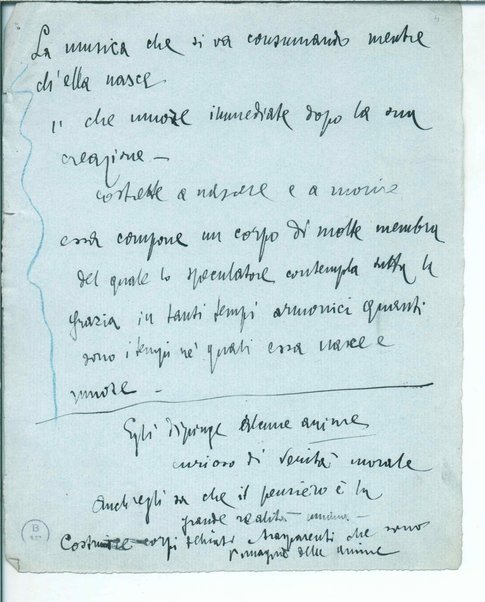 La musica che si va consumando mentre
ch'ella nasce
" che muore immediate dopo la sua
creazione —
costrette a nascere e a morire
essa compone un corpo di molte membra
del quale lo speculatore contempla tutta la
grazia in tanti tempi armonici quanti
sono i tempi ne' quali essa nasce e
muore —
Egli dipinge alcune anime
curioso di verità morale
Anch'egli sa che il pensiero è la
grande realtà umana —
corpi delicati trasparenti che sono
l'immagine delle anime
B